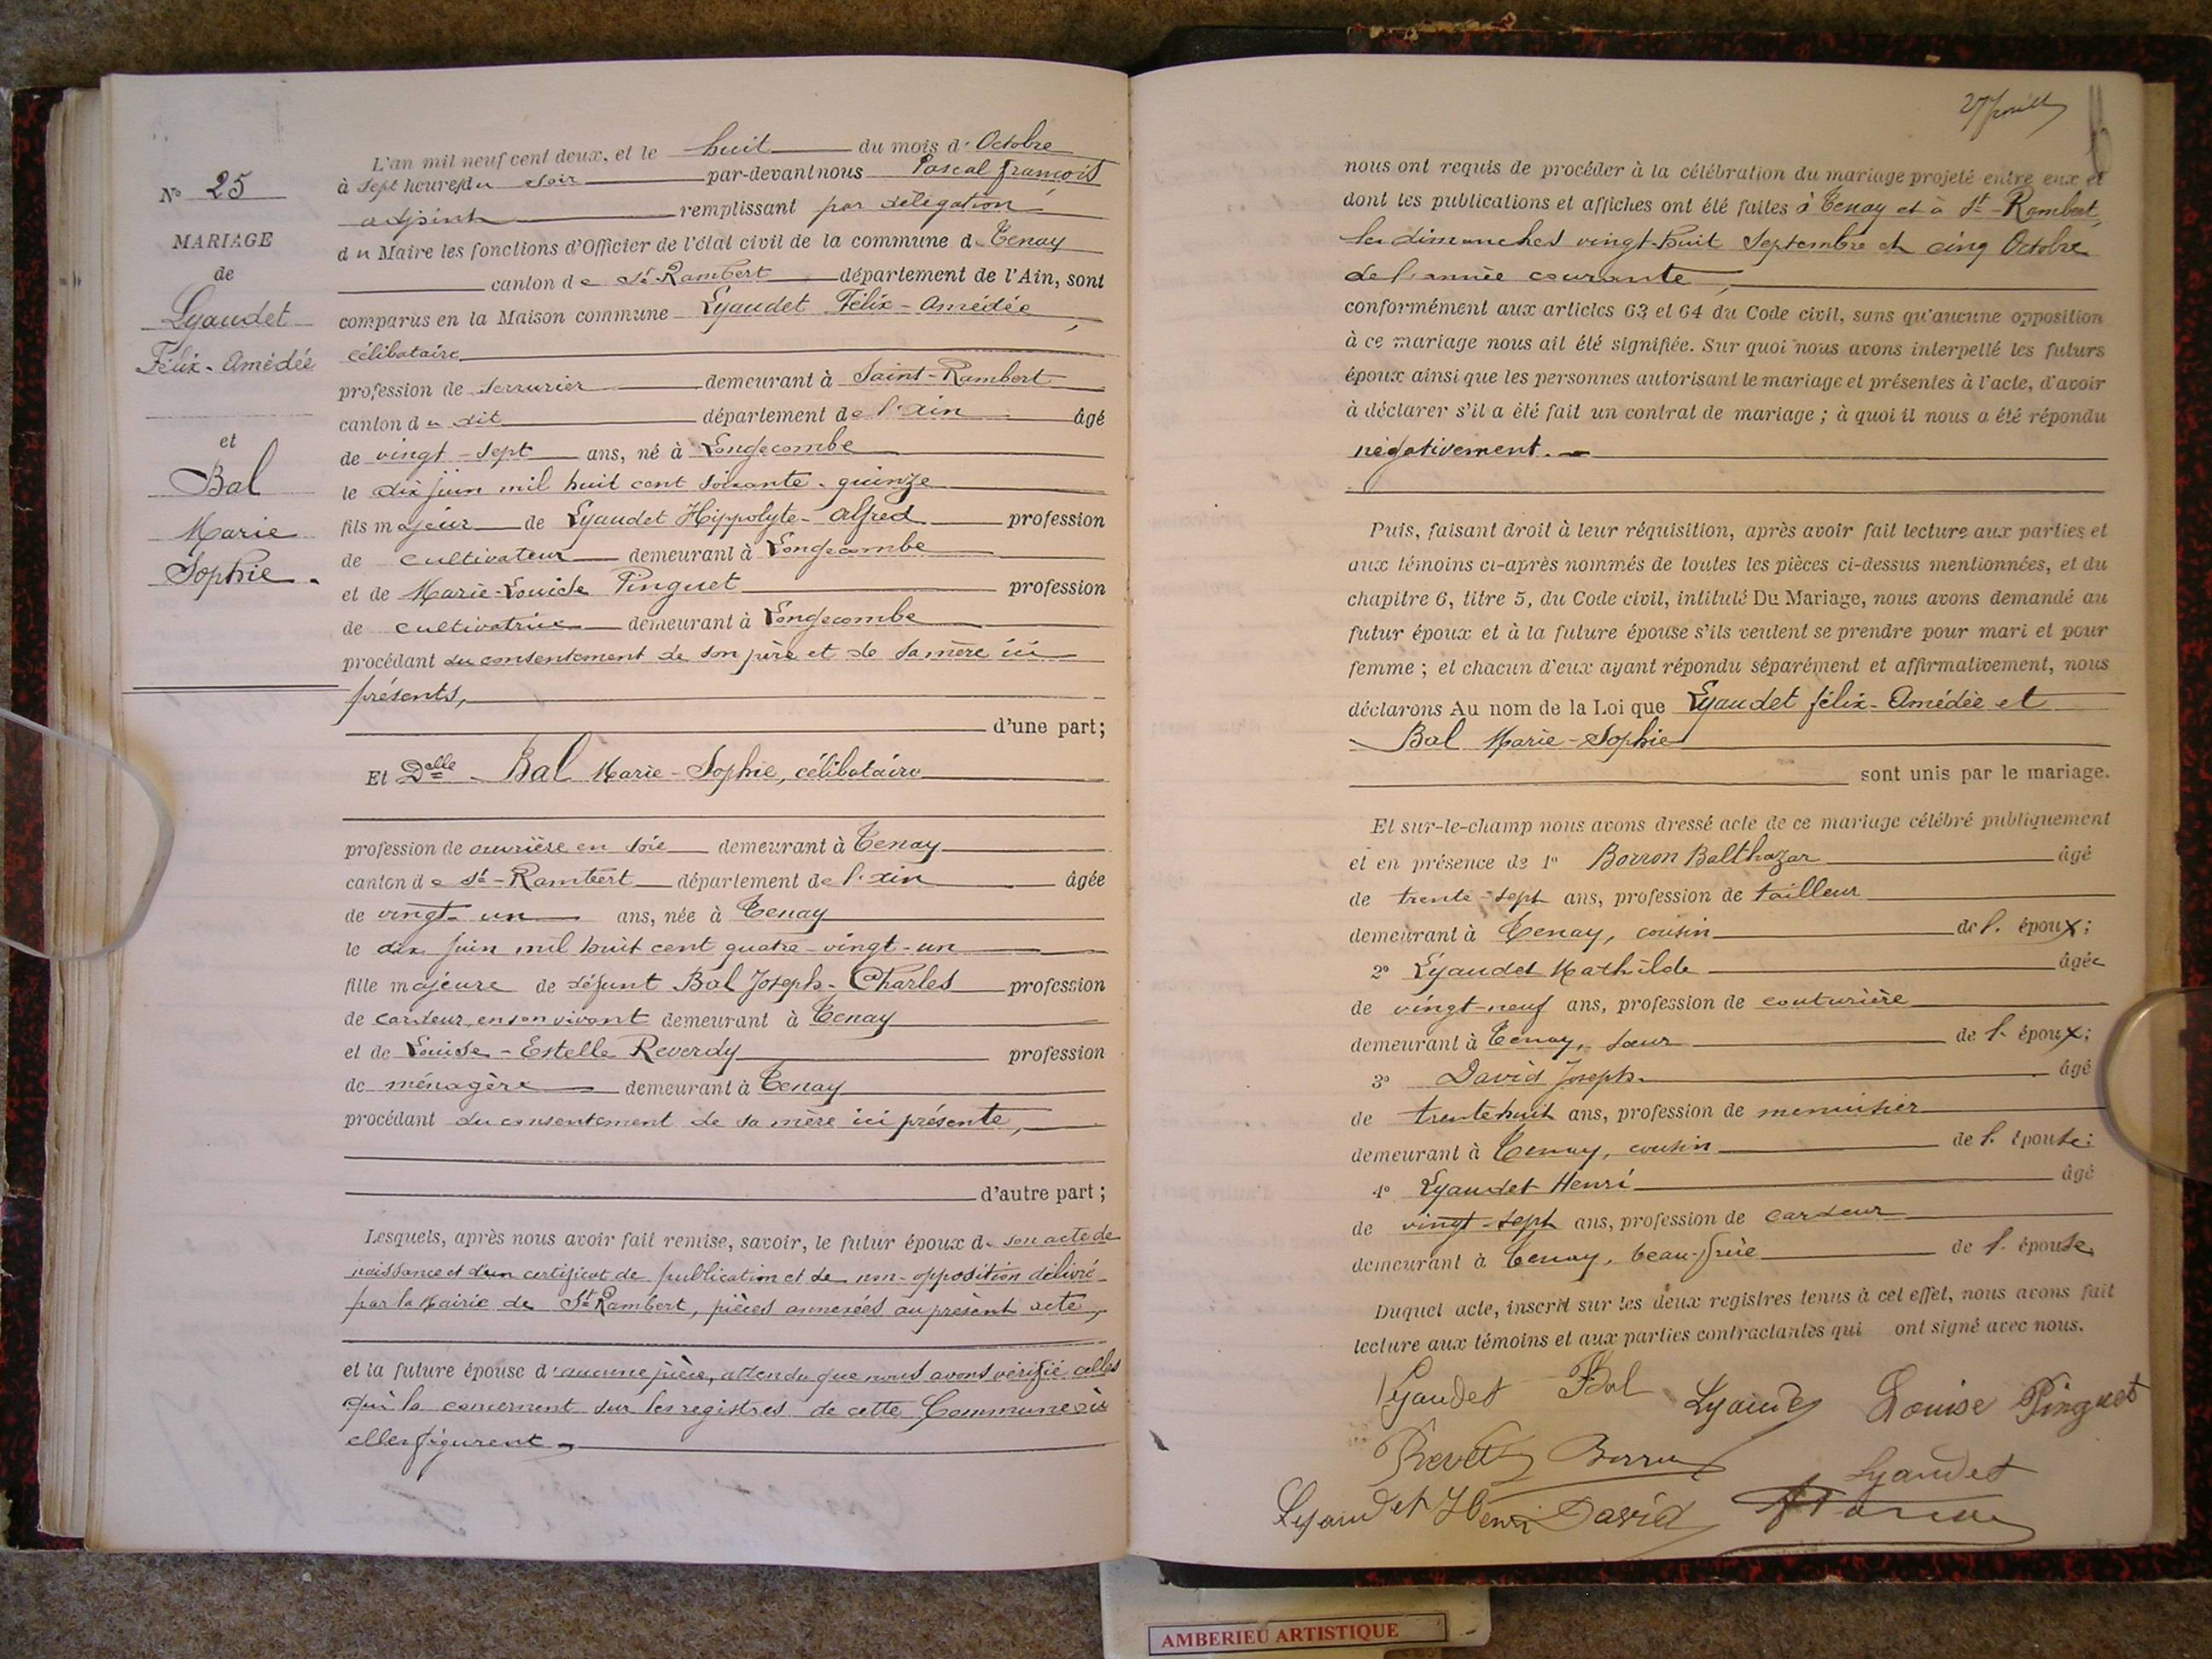 N° 25
MARIAGE
de
Lyaudet
Félix-Amédée
et
Bal
Marie
Sophie.
L'an mil neuf cent deux, et le huit du mois d'Octobre
à sept heures du soir par-devant nous Pascal François
adjoint remplissant par délégation
du Maire les fonctions d'Officier de l'état civil de la commune de Tenay
canton de St-Rambert département de l'Ain, sont
comparus en la Maison commune Lyaudet Félix-Amédée,
célibataire
profession de serrurier demeurant à Saint-Rambert
canton du dit département de l'Ain âgé
de vingt-sept ans, né à Longecombe
le dix juin mil huit cent soixante-quinze
fils majeur de Lyaudet Hippolyte-Alfred profession
de cultivateur demeurant à Longecombe
et de Marie-Louise Pinguet profession
de cultivatrice demeurant à Longecombe
procédant du consentement de son père et de sa mère ici
présents,
d'une part;
Et Delle Bal Marie-Sophie, célibataire
profession de ouvrière en soie demeurant à Tenay
canton de St-Rambert département de l'Ain âgée
de vingt-un ans, née à Tenay
le dix juin mil huit cent quatre-vingt-un
fille majeure de défunt Bal Joseph-Charles profession
de cardeur en son vivant demeurant à Tenay
et de Louise-Estelle Reverdy profession
de ménagère demeurant à Tenay
procédant du consentement de sa mère ici présente,
d'autre part;
Lesquels, après nous avoir fait remise, savoir, le futur époux de son acte de
naissance et d'un certificat de publication et de non-opposition délivré
par la Mairie de St Rambert, pièces annexées au présent acte,
et la future épouse d'aucune pièce, attendu que nous avons vérifié celles
qui la concernent sur les registres de cette Commune où
elles figurent
nous ont requis de procéder à la célébration du mariage projeté entre eux et
dont les publications et affiches ont été faites à Tenay et à St-Rambert,
les dimanches vingt-huit Septembre et cinq Octobre
de l'année courante,
conformément aux articles 63 et 64 du Code civil, sans qu'aucune opposition
à ce mariage nous ait été signifiée. Sur quoi nous avons interpellé les futurs
époux ainsi que les personnes autorisant le mariage et présentes à l'acte, d'avoir
à déclarer s'il a été fait un contrat de mariage; à quoi il nous a été répondu
négativement.
Puis, faisant droit à leur réquisition, après avoir fait lecture aux parties et
aux témoins ci-après nommés de toutes les pièces ci-dessus mentionnées, et du
chapitre 6, titre 5, du Code civil, intitulé Du Mariage, nous avons demandé au
futur époux et à la future épouse s'ils veulent se prendre pour mari et pour
femme; et chacun d'eux ayant répondu séparément et affirmativement, nous
déclarons Au nom de la Loi que Lyaudet Félix-Amédée et
Bal Marie-Sophie
sont unis par le mariage.
Et sur-le-champ nous avons dressé acte de ce mariage célébré publiquement
et en présence de 1° Borron Balthazar âgé
de trente-sept ans, profession de tailleur
demeurant à Tenay, cousin de l'époux;
2° Lyaudet Mathilde âgée
de vingt-neuf ans, profession de couturière
demeurant à Tenay, sœur de l'époux;
3° David Joseph âgé
de trente huit ans, profession de menuisier
demeurant à Tenay, cousin de l'épouse;
4° Lyaudet Henri âgé
de vingt-sept ans, profession de cardeur
demeurant à Tenay, beau-frère de l'épouse.
Duquel acte, inscrit sur les deux registres tenus à cet effet, nous avons fait
lecture aux témoins et aux parties contractantes qui ont signé avec nous.
Lyaudet Bal Lyaudet Louise Pinguet
Borron Lyaudet
Lyaudet Henri David
AMBERIEU ARTISTIQUE